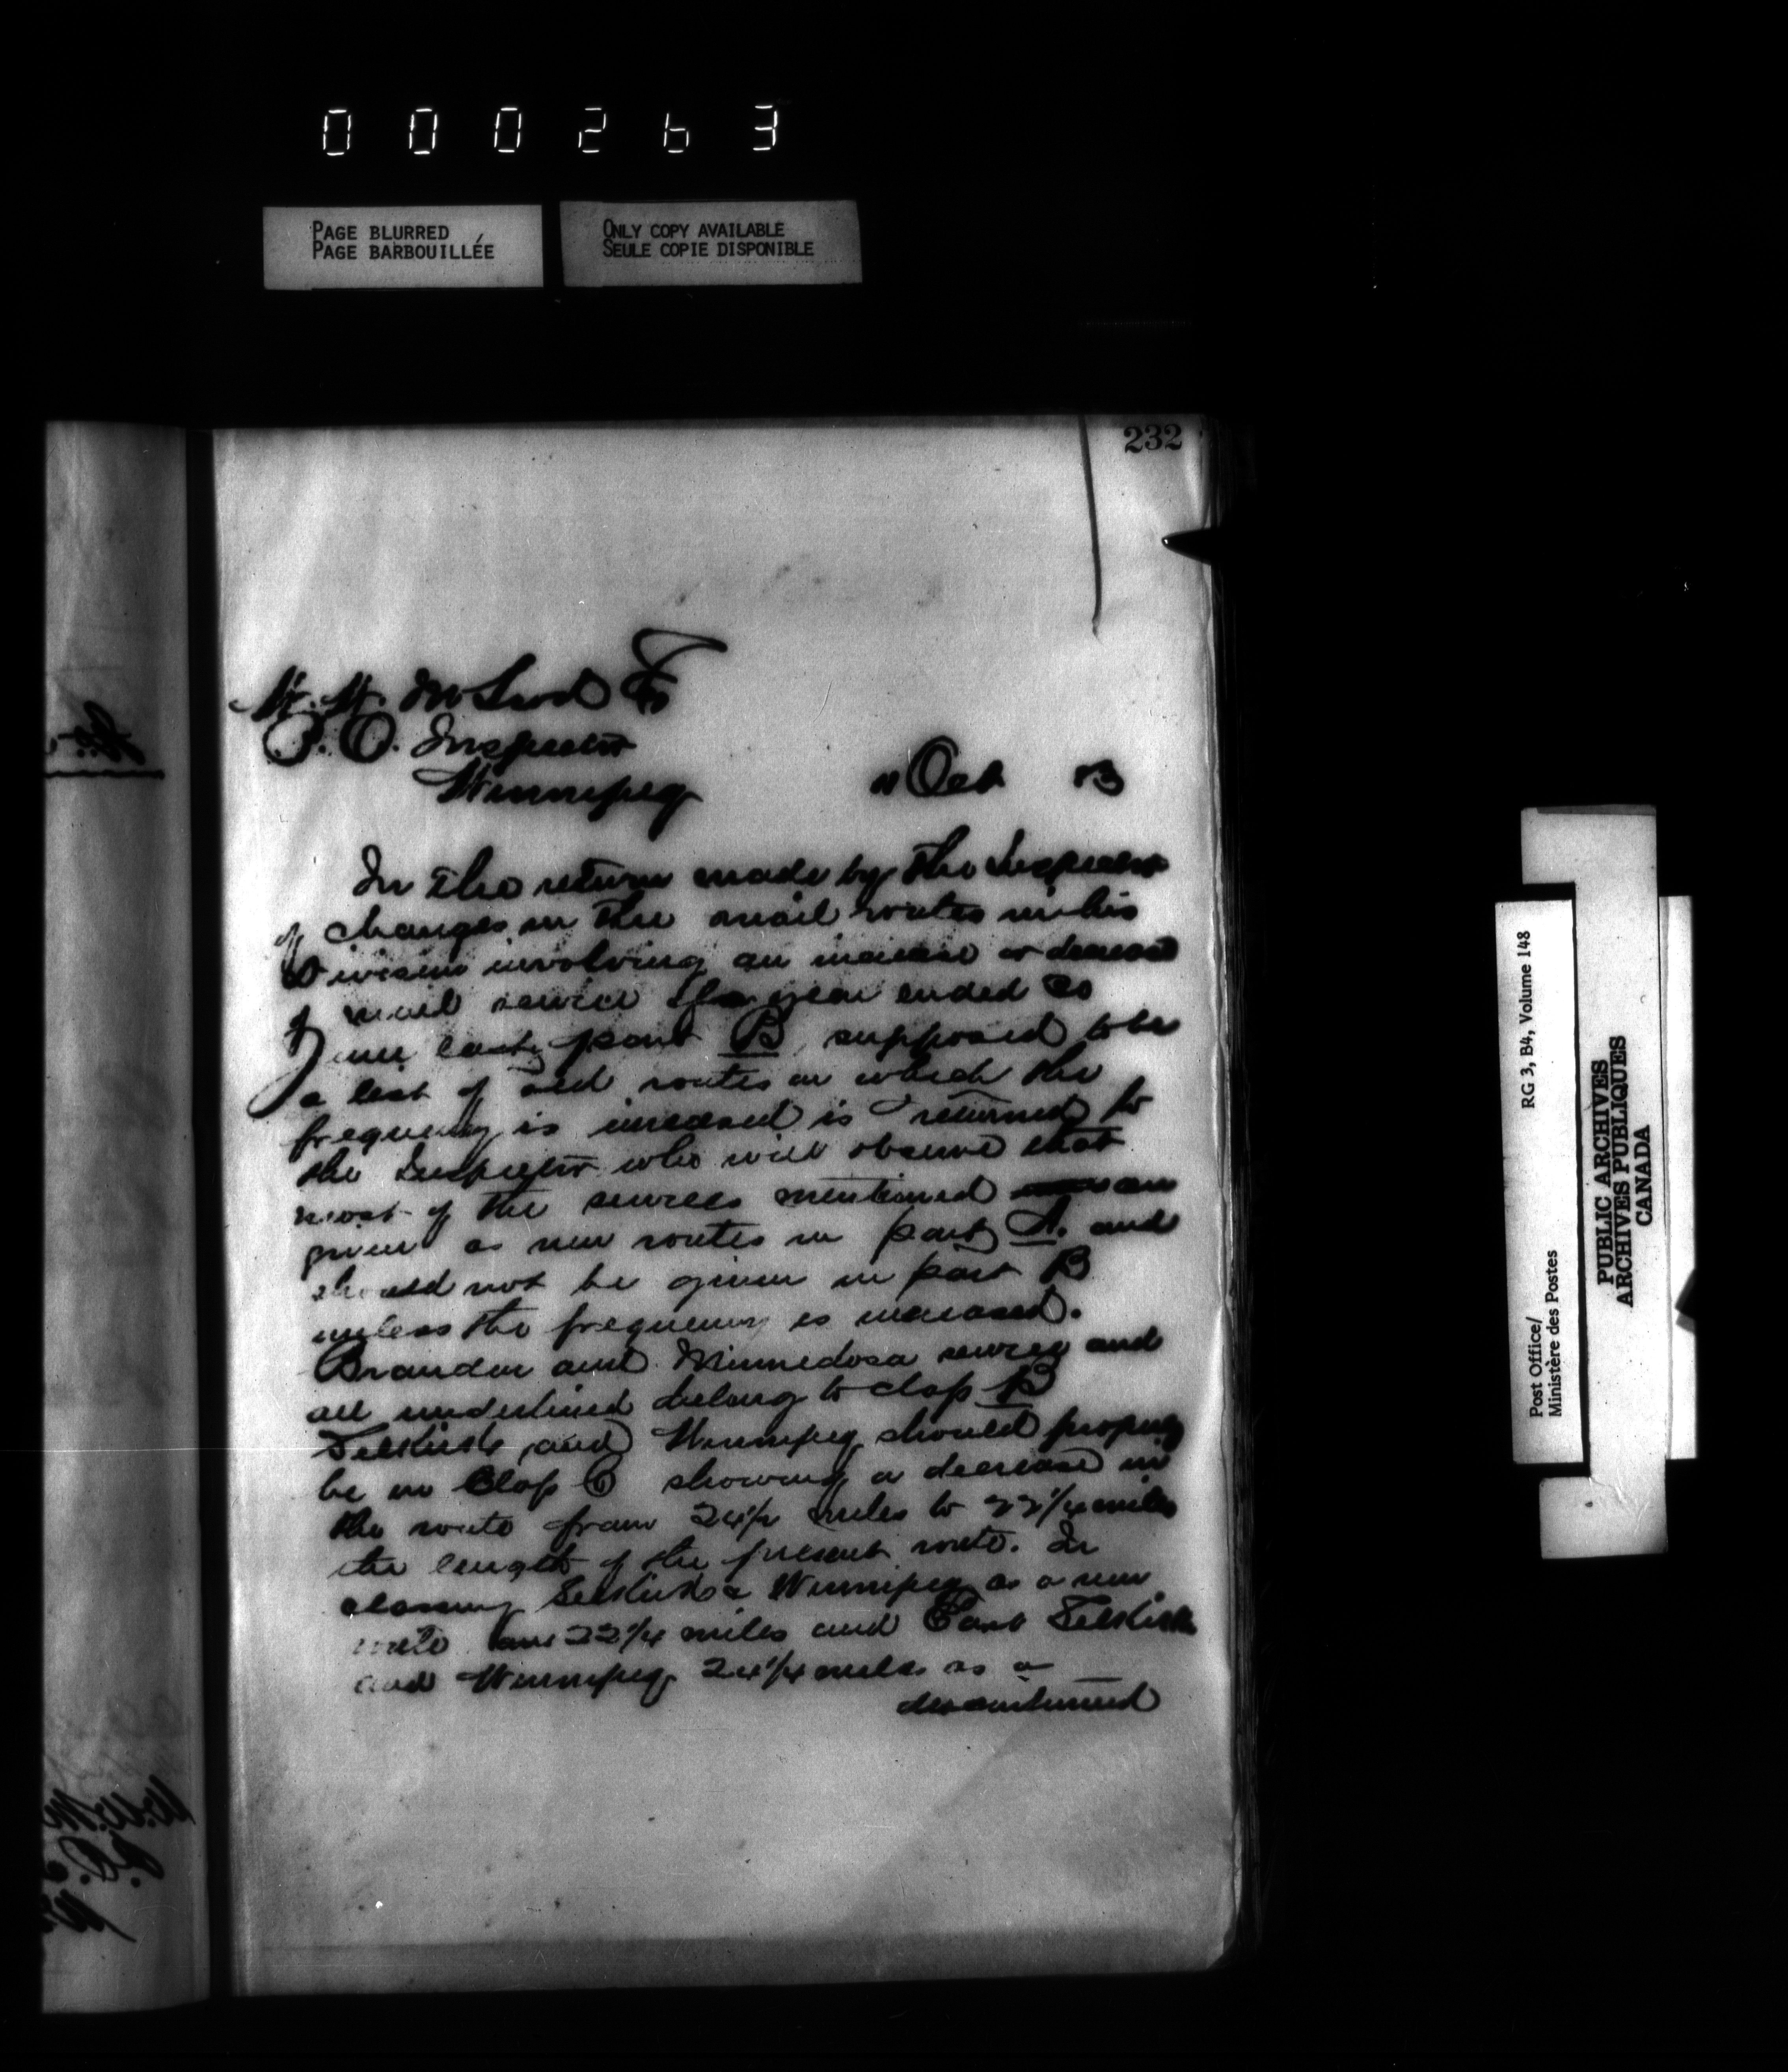 000263
PAGE BLURRED
PAGE BARBOUILLÉE
ONLY COPY AVAILABLE
SEULE COPIE DISPONIBLE
232
W. W. McLeod
P. O. Inspector
Winnipeg
Oct 83
In the return made by the Inspector
of changes in the mail routes in his
Division involving an increase or decrease
of mail service year ended 30
June last part B supposed to be
a list of old routes on which the
frequency is increased is returned to
the Inspector who will observe that
most of the services mentioned are
given as new routes in part A. and
should not be given in part B
unless the frequency is increased.
Brandon and Minnedosa service and
all underlined belong to class B
Selkirk and Winnipeg should properly
be in Class C showing a decrease in
the route from 24 1/2 miles to 22 1/4 miles
the length of the present route. In
classing Selkirk & Winnipeg as a new
route 22 1/4 miles and East Selkirk
and Winnipeg 24 1/4 miles as a
discontinued
Post Office/
Ministère des Postes
RG 3, B4, Volume 148
PUBLIC ARCHIVES
ARCHIVES PUBLIQUES
CANADA